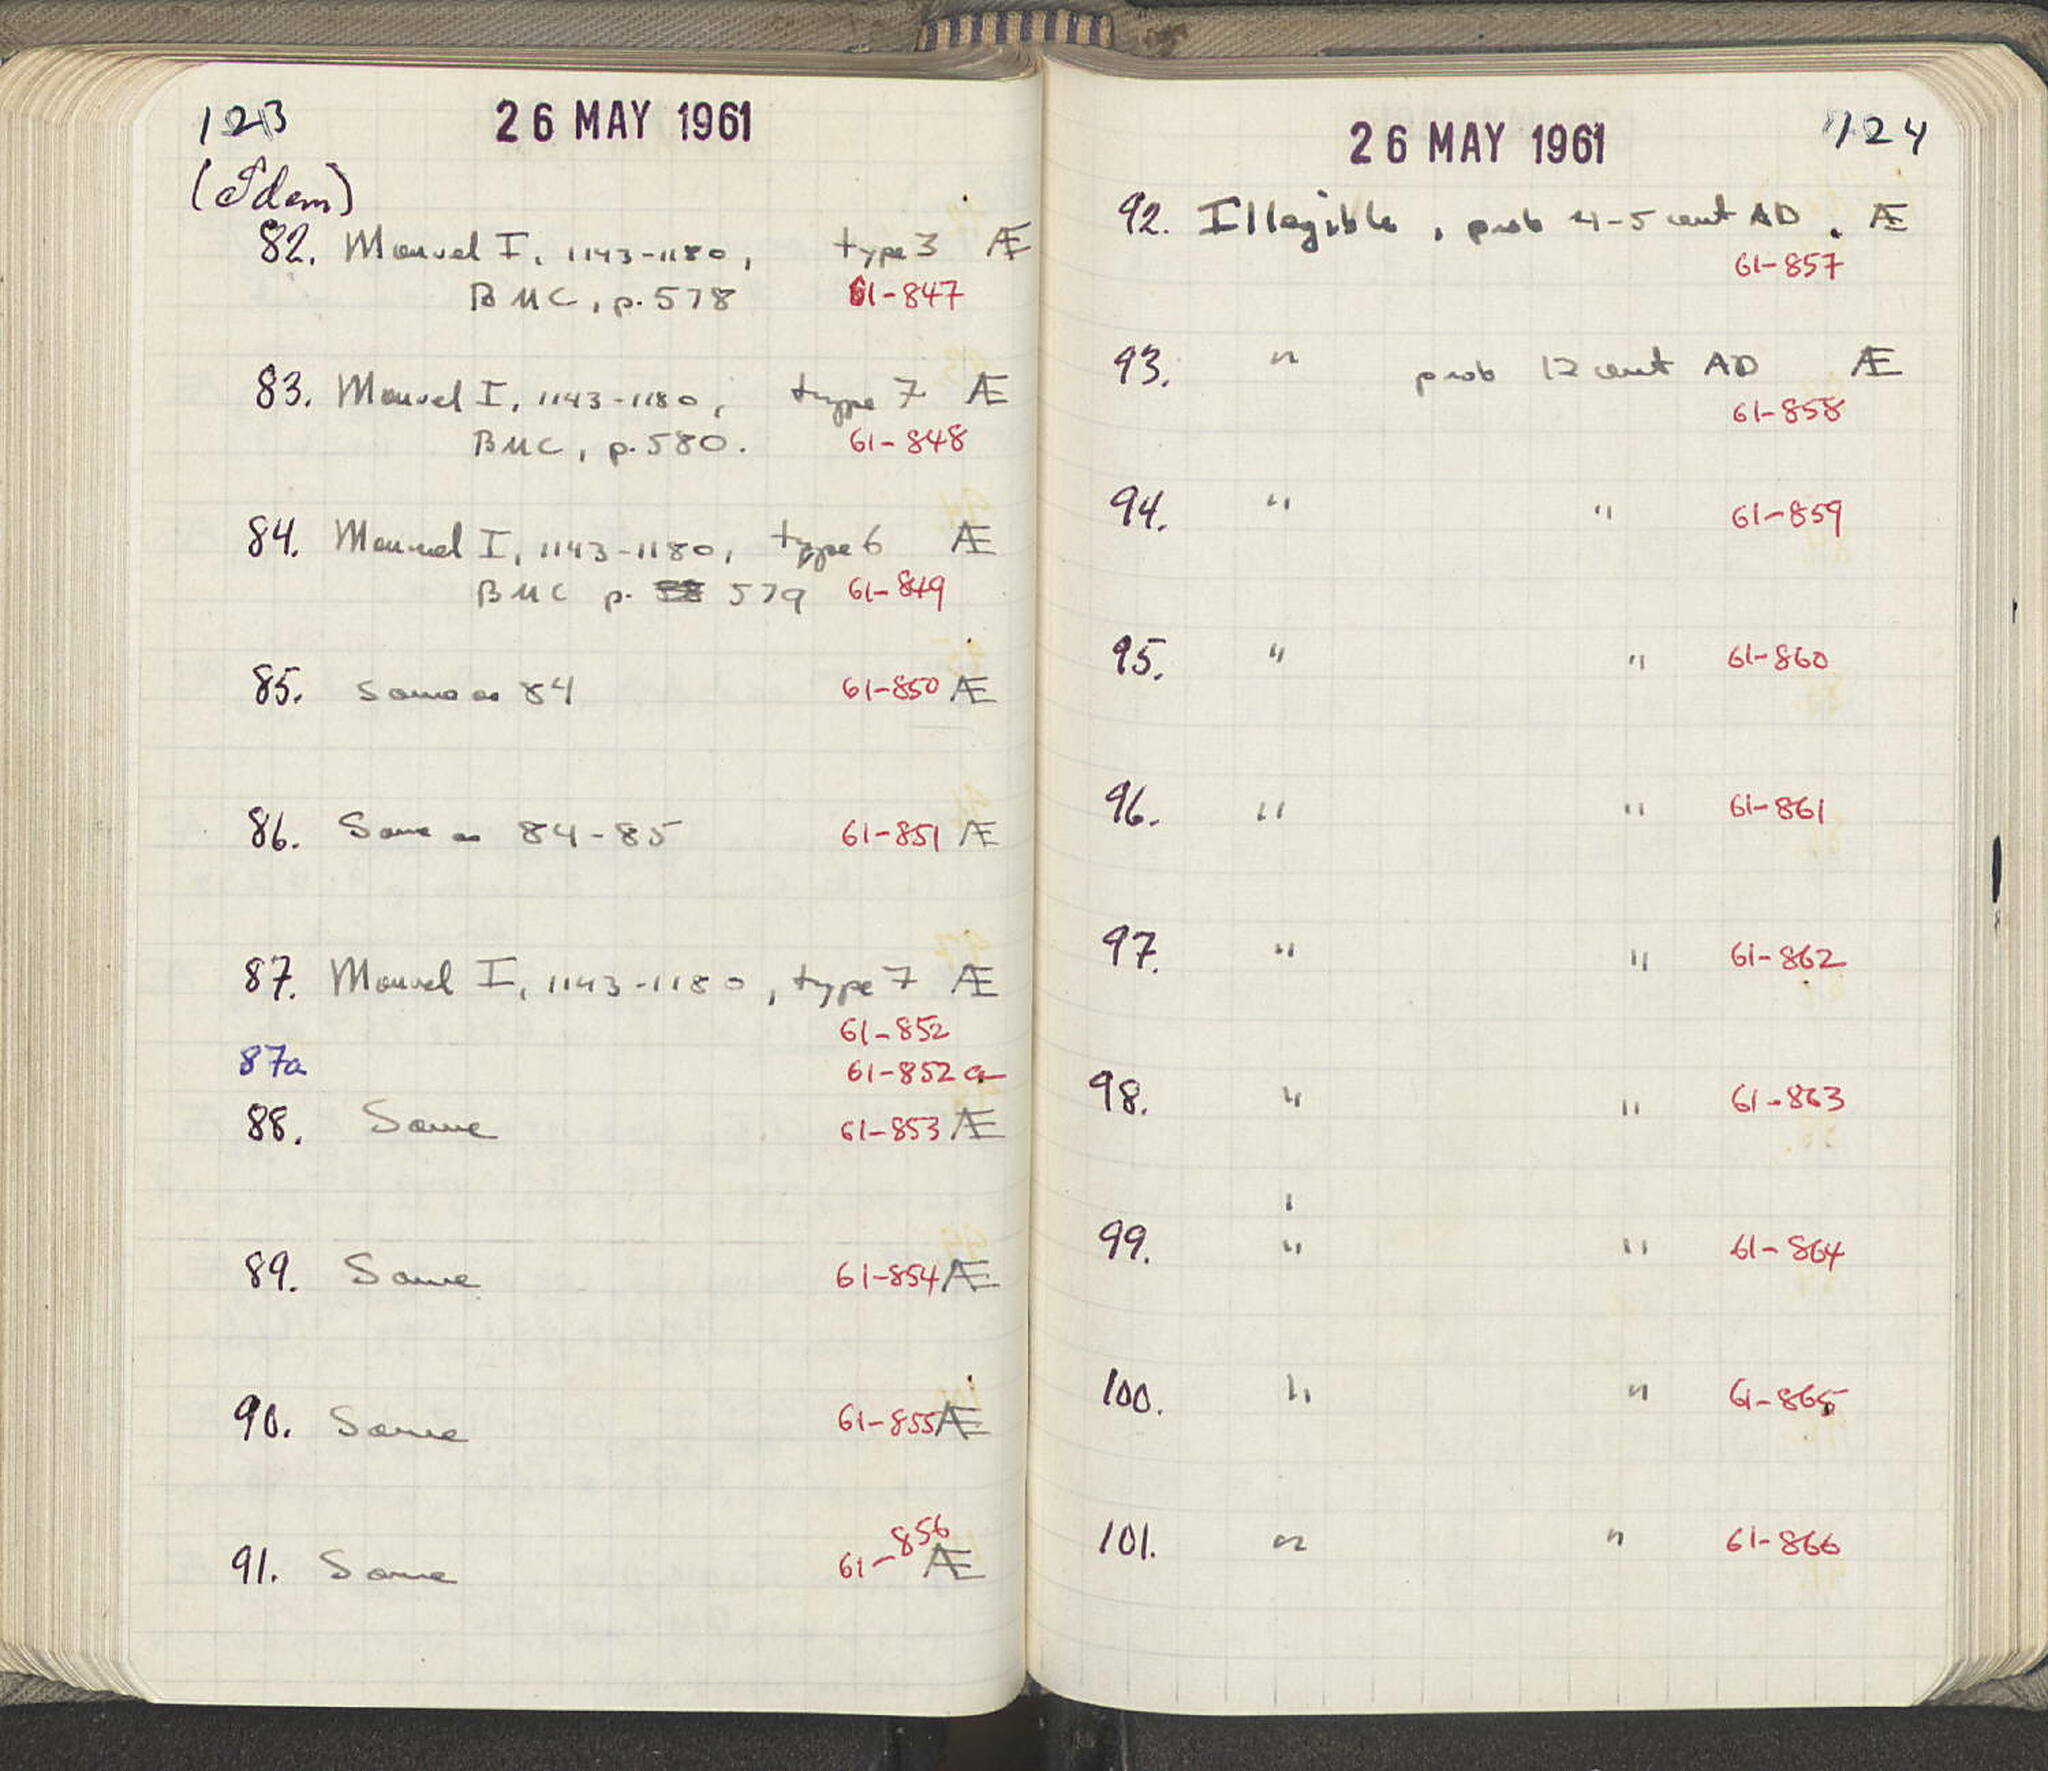 123
26 MAY 1961
(Idem)
82. Manuel I, 1143-1180, type 3 Æ
BMC, p. 578 61-847
83. Manuel I, 1143-1180, type 7 Æ
BMC, p. 580. 61-848
84. Manuel I, 1143-1180, type 6 Æ
BMC p. 579 61-849
85. Same as 84 61-850 Æ
86. Same as 84-85 61-851 Æ
87. Manuel I, 1143-1180, type 7 Æ
61-852
87a 61-852a
88. Same 61-853 Æ
89. Same 61-854 Æ
90. Same 61-855 Æ
91. Same 61-856 Æ
26 MAY 1961
124
92. Illegible, prob 4-5 cent AD. Æ
61-857
93. " prob 12 cent AD Æ
61-858
94. " " 61-859
95. " " 61-860
96. " " 61-861
97. " " 61-862
98. " " 61-863
99. " " 61-864
100. " " 61-865
101. " " 61-866